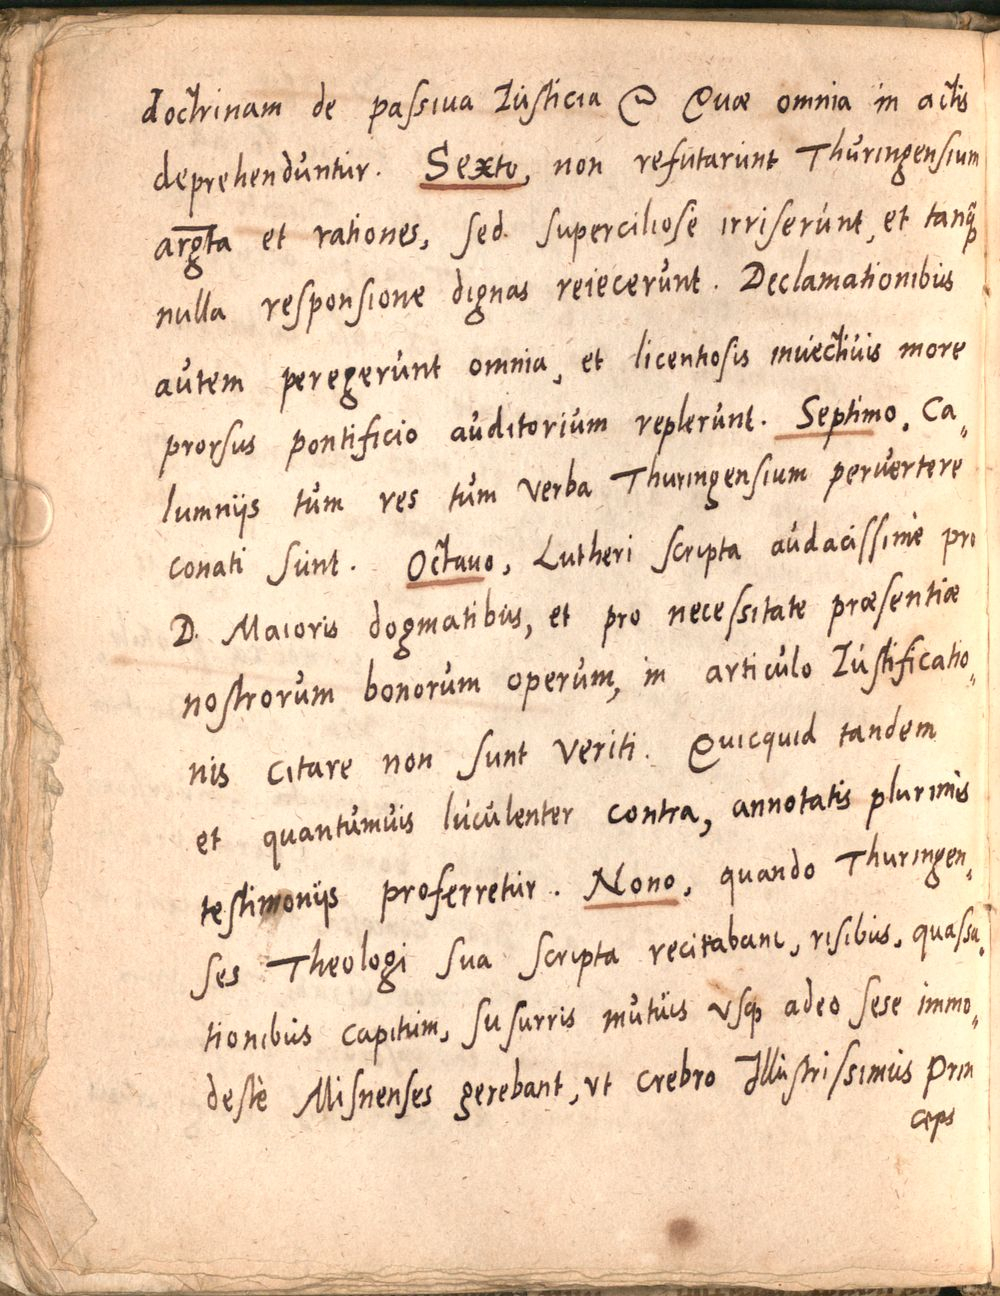 doctrinam de paſsiua Iuſticia & Quæ omnia in actis
deprehenduntur. Sexto, non refutarunt Thuringenſium
argta et rationes, ſed ſupercilioſe irriſerunt, et tanq̃
nulla reſponſione dignas reiecerunt. Declamationibus
autem peregerunt omnia, et licentioſis inuectiuis more
prorſus pontificio auditorium replerunt. Septimo, Ca„
lumnijs tum res tum verba Thuringenſium peruertere
conati ſunt. Octauo, Lutheri ſcripta audaciſſimè pro
D. Maioris dogmatibus, et pro neceſsitate præſentiæ
noſtrorum bonorum operum, in articulo Iuſtificatio„
nis citare non ſunt veriti. Quicquid tandem
et quantumuis luculenter contra, annotatis plurimis
teſtimonijs proferretur. Nono, quando Thuringen„
ses Theologi sua ſcripta recitabant, riſibus, quaſsa„
tionibus capitum, ſuſurris mutuis vſq adeo ſese immo„
deſtè Miſnenſes gerebant, vt crebro Illuſtriſsimus Prin
ceps